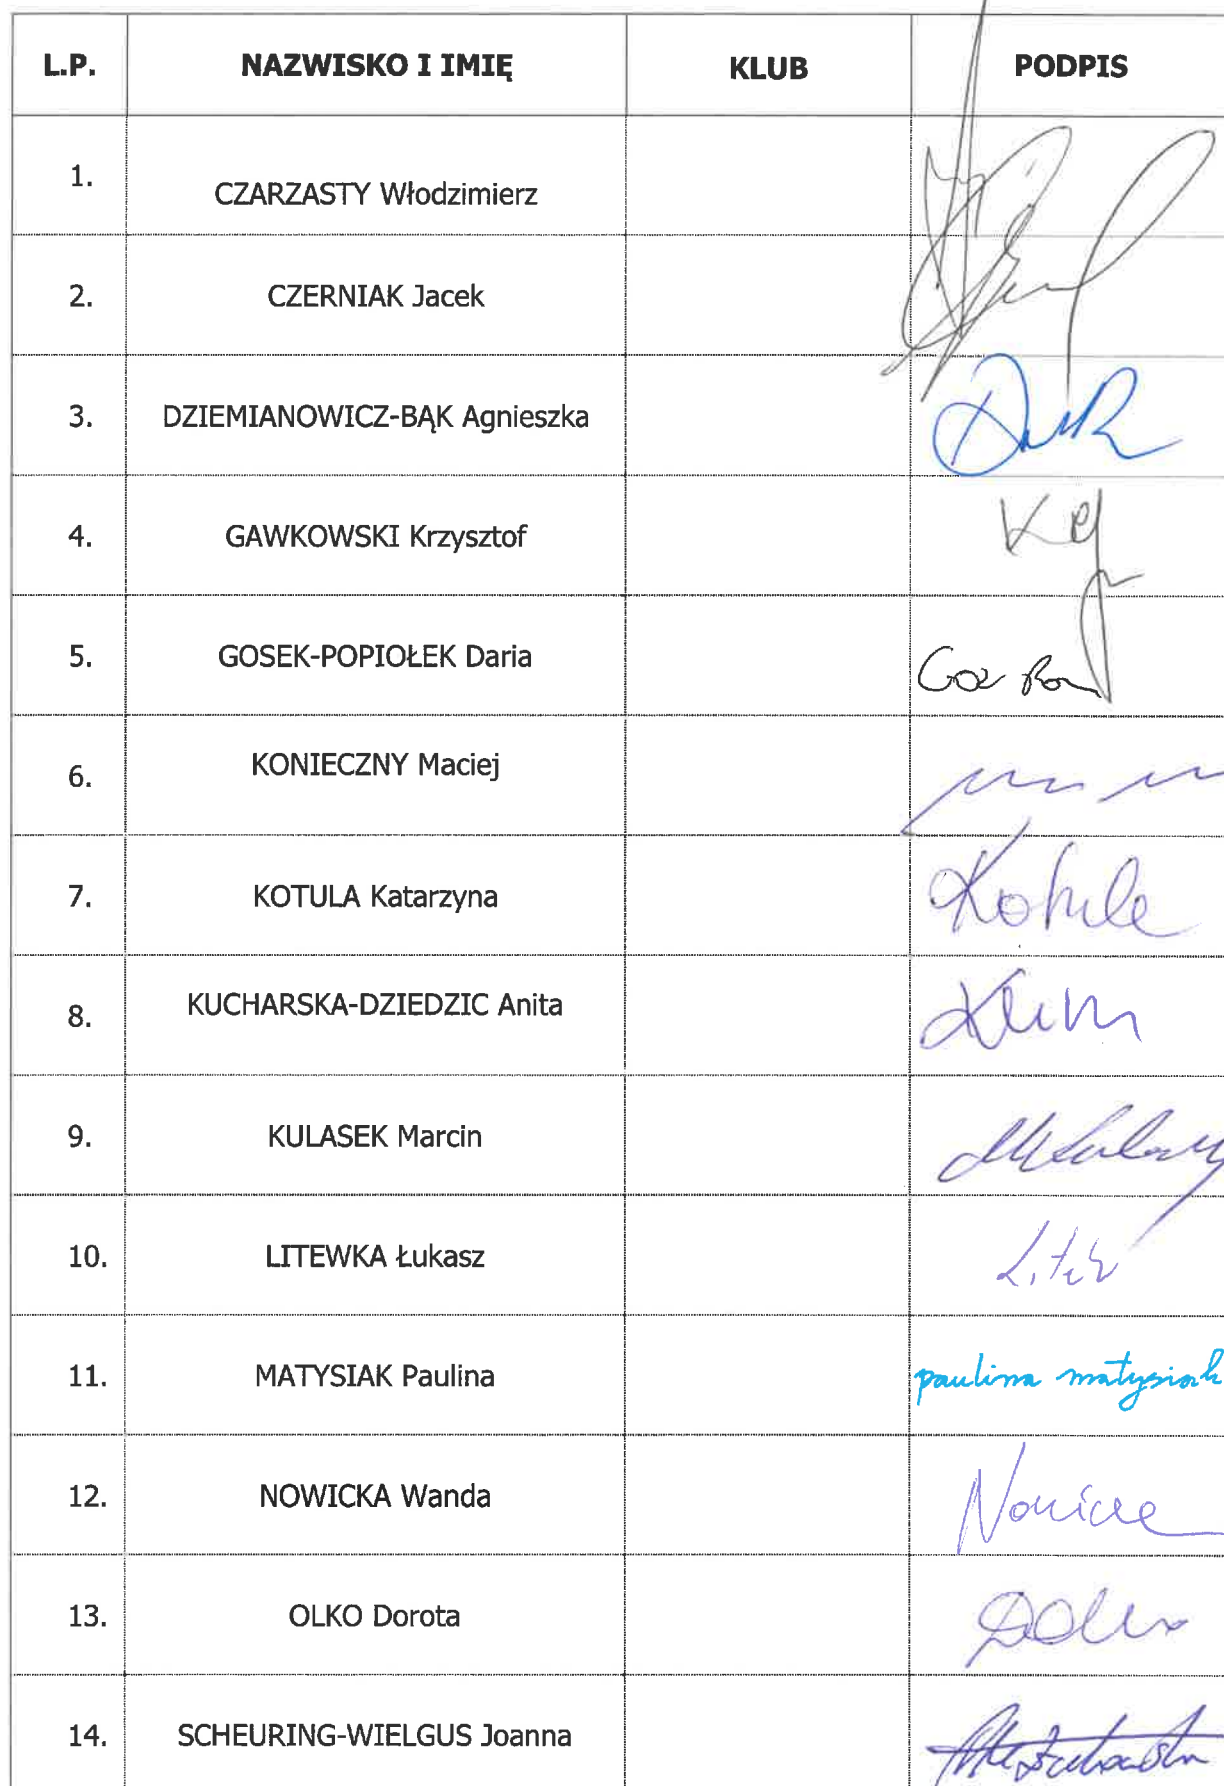 L.P. NAZWISKO I IMIĘ KLUB PODPIS
1. CZARZASTY Włodzimierz
2. CZERNIAK Jacek
3. DZIEMIANOWICZ-BĄK Agnieszka
4. GAWKOWSKI Krzysztof
5. GOSEK-POPIOŁEK Daria
6. KONIECZNY Maciej
7. KOTULA Katarzyna Kotula
8. KUCHARSKA-DZIEDZIC Anita
9. KULASEK Marcin
10. LITEWKA Łukasz
11. MATYSIAK Paulina paulina matysiak
12. NOWICKA Wanda Nowicka
13. OLKO Dorota
14. SCHEURING-WIELGUS Joanna